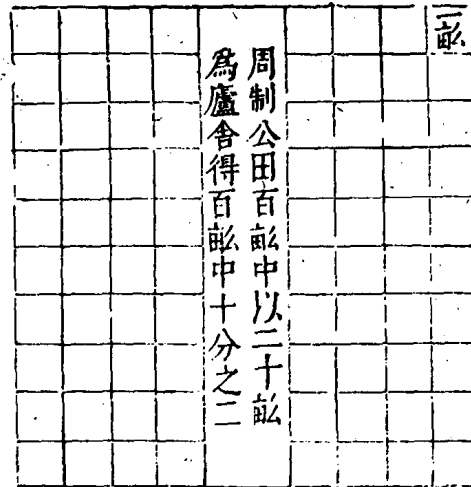 一畝
周制公田百畝中以二十畝
爲廬舍得百畝中十分之二